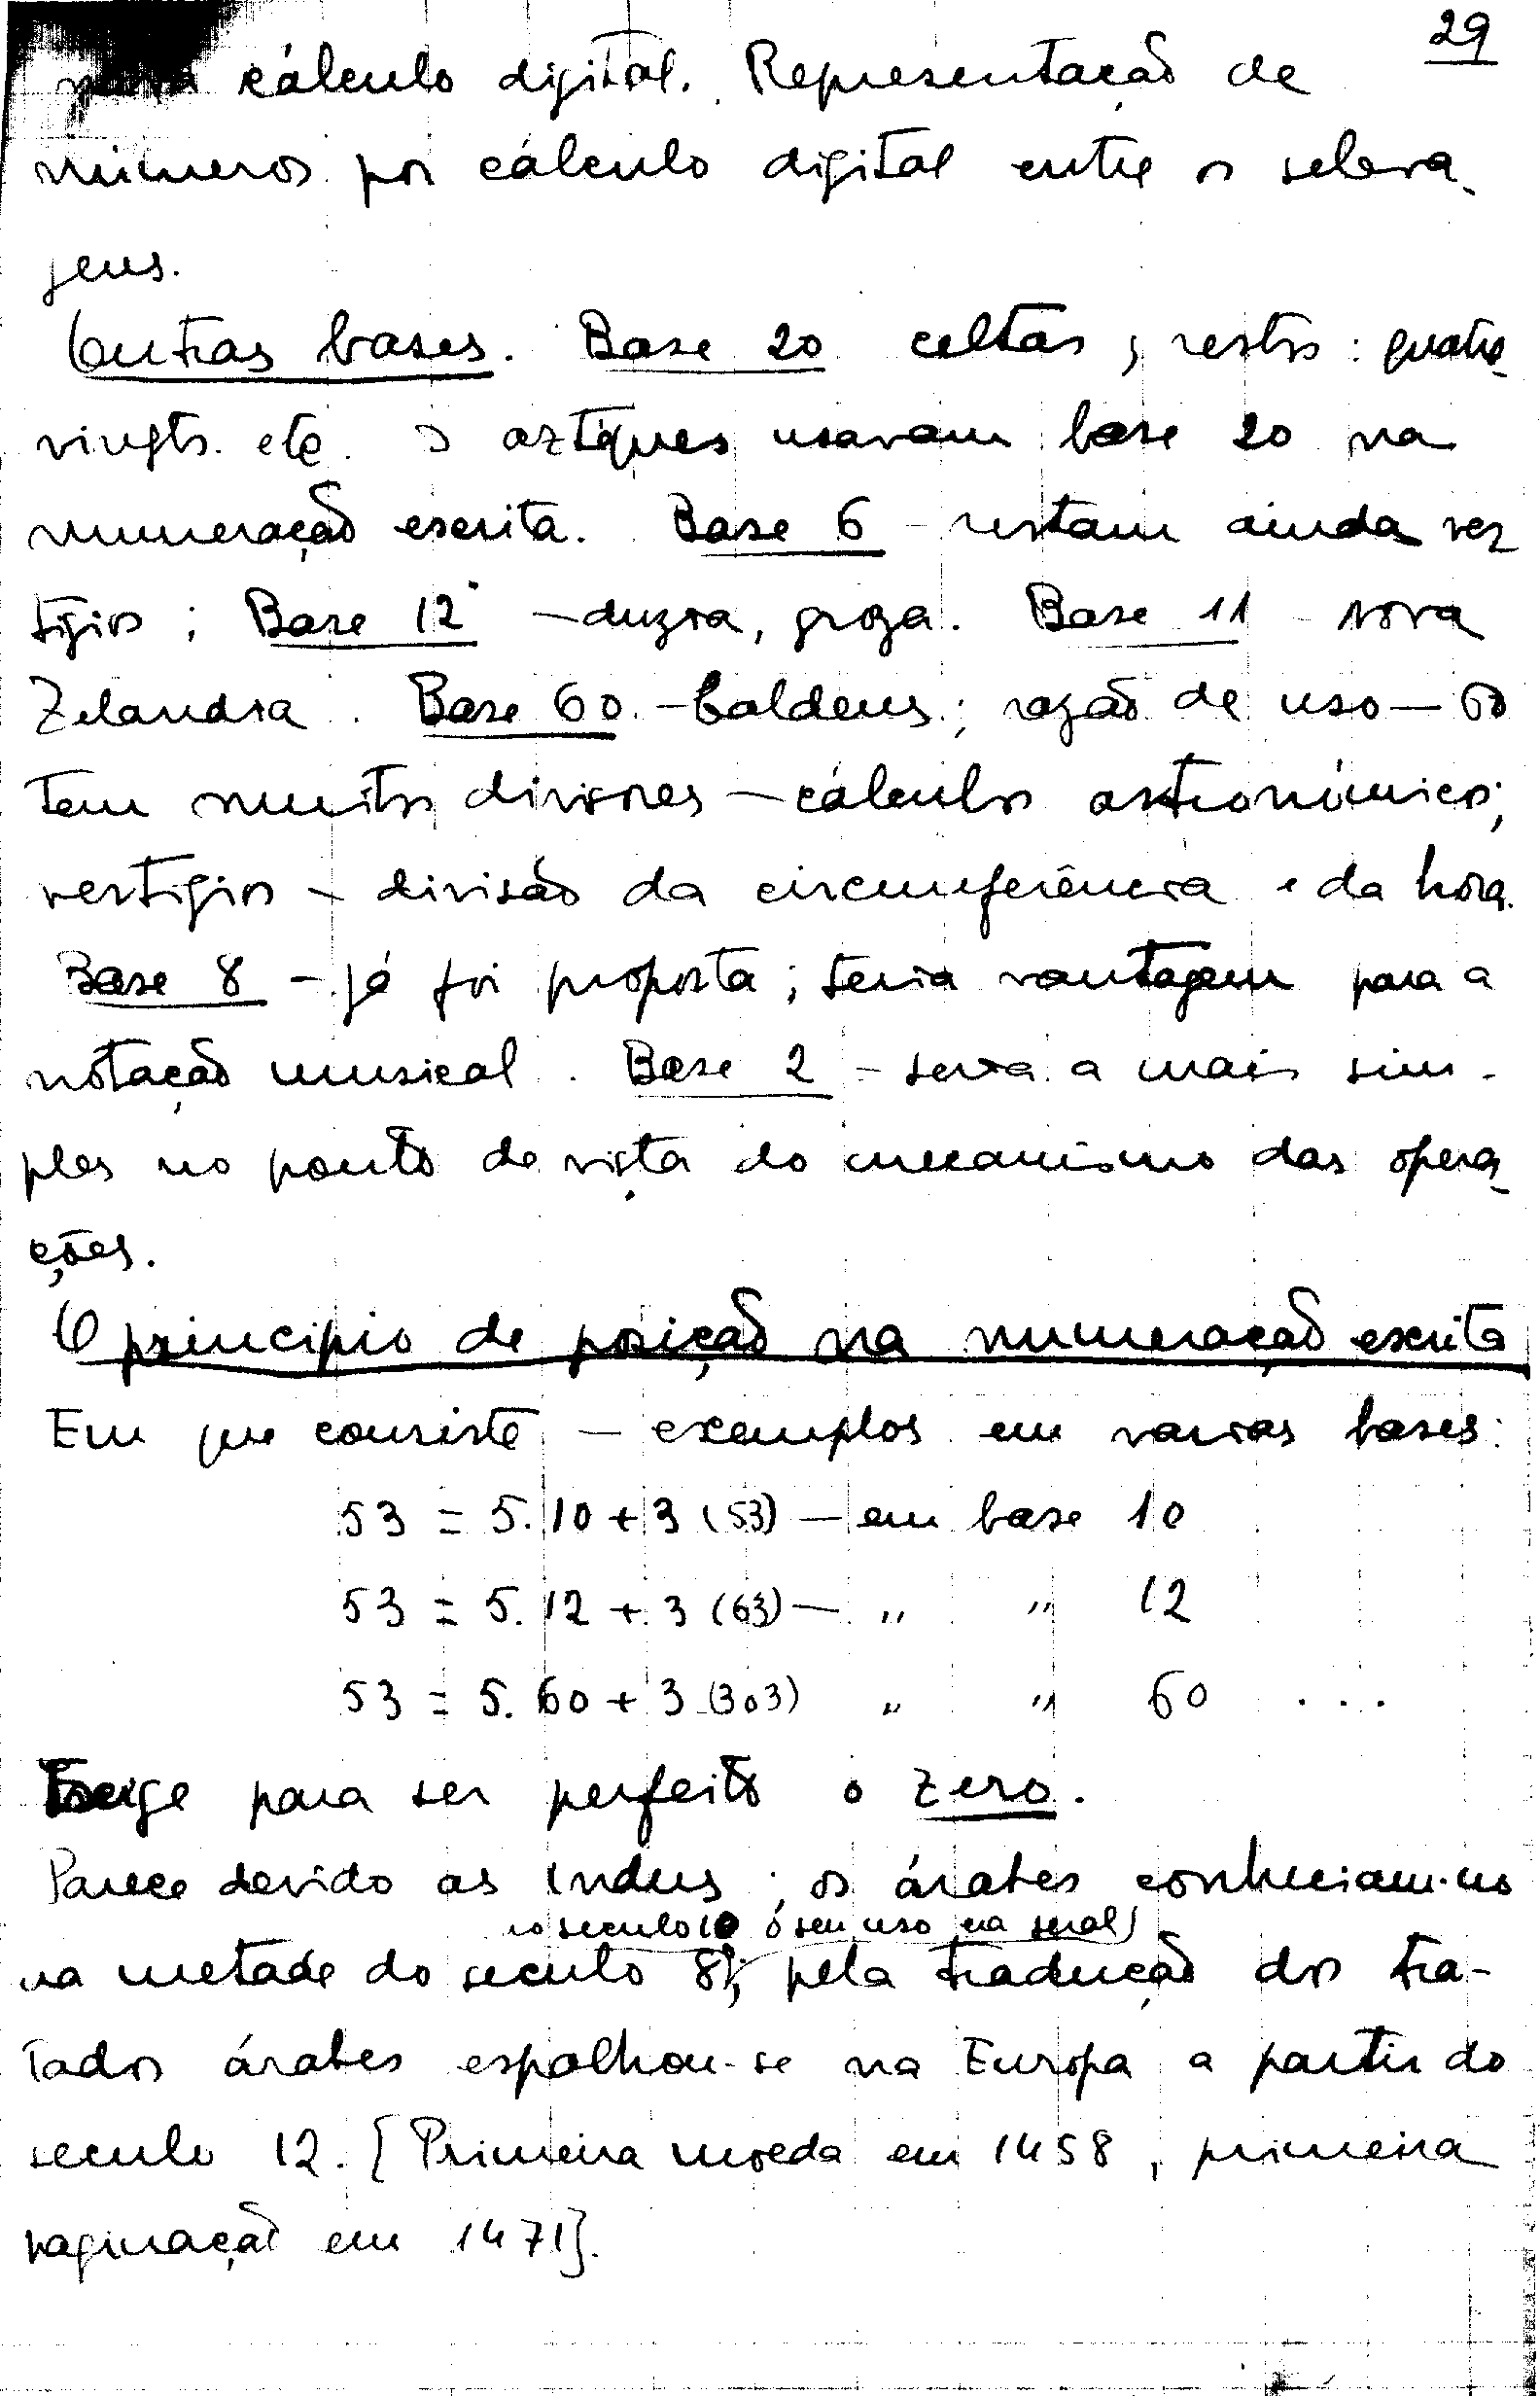 29
para cálculo digital. Representação de
números por cálculo digital entre os selva-
gens.
Outras bases. Base 20 celtas; restos: quatre-
vingts. etc. Os aztéques usavam base 20 na
numeração escrita. Base 6 - restam ainda ves
tígios; Base 12 - duzia, groza. Base 11 - Nova
Zelandia. Base 60. - Caldeus; razão de uso - 60
tem muitos divisores - cálculos astronómicos;
vestigios - divisão da circumferência e da hora.
Base 8 - já foi proposta; teria vantagem para a
notação musical. Base 2 - seria a mais sim-
ples no ponto de vista do mecanismo das opera-
ções.
O principio de posição na numeração escrita
Em que consiste - exemplos em varias bases:
53 = 5.10 + 3 (53) - em base 10
53 = 5.12 + 3 (63) - " " 12
53 = 5.60 + 3 (303) " " 60 ...
Exige para ser perfeito o zero.
Parece devido aos Indus; os árabes conheciam-no
no seculo 10 o seu uso era geral
na metade do seculo 8º; pela tradução dos tra-
tados árabes espalhou-se na Europa a partir do
seculo 12. [Primeira moeda em 1458, primeira
paginação em 1471].